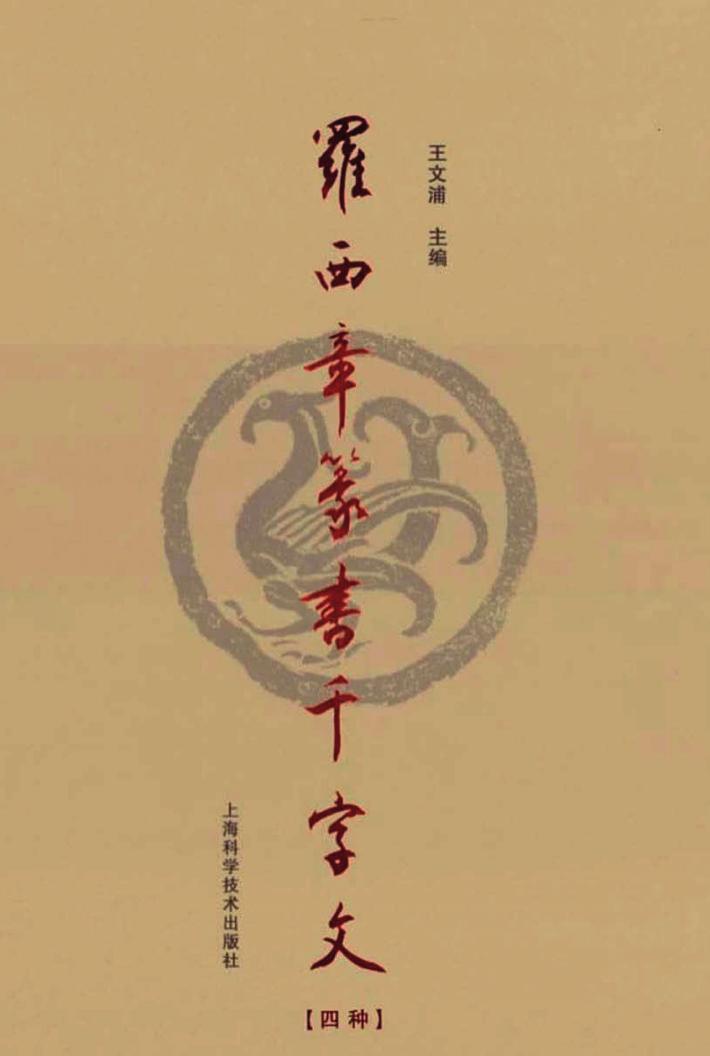 王文浦 主编
羅西章篆書千字文
【四种】
上海科学技术出版社